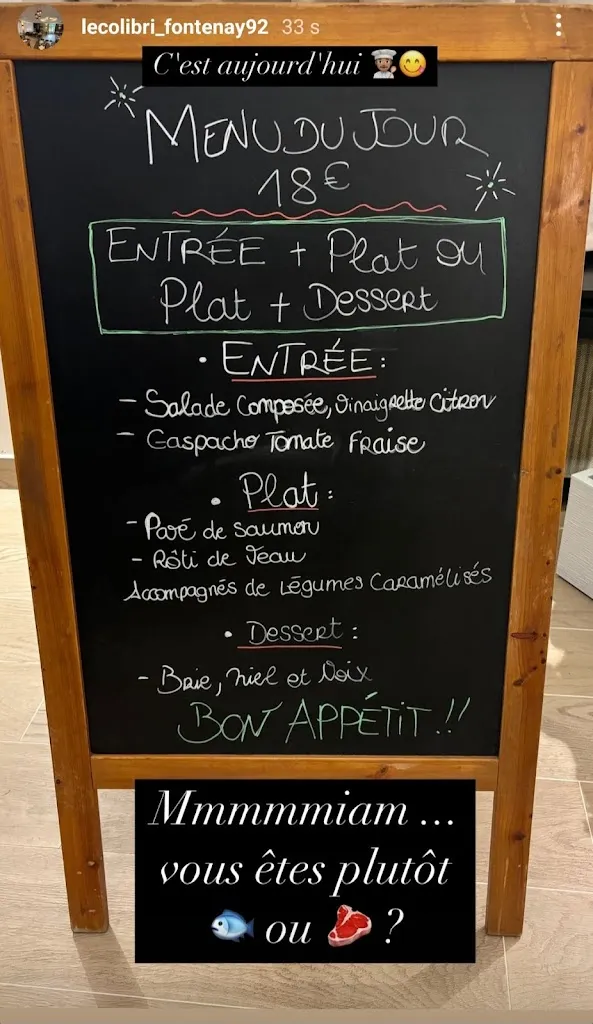 lecolibri_fontenay92 33 s
C'est aujourd'hui 👨🏽‍🍳😋
MENU DU JOUR
18€
ENTRÉE + Plat ou
Plat + Dessert
• ENTRÉE :
- Salade Composée, Vinaigrette Citron
- Gaspacho Tomate Fraise
• Plat :
- Pavé de saumon
- Rôti de Veau
Accompagnés de Légumes Caramélisés
• Dessert :
- Brie, Miel et Noix
BON APPÉTIT !!
Mmmmmiam ...
vous êtes plutôt
🐟 ou 🥩 ?